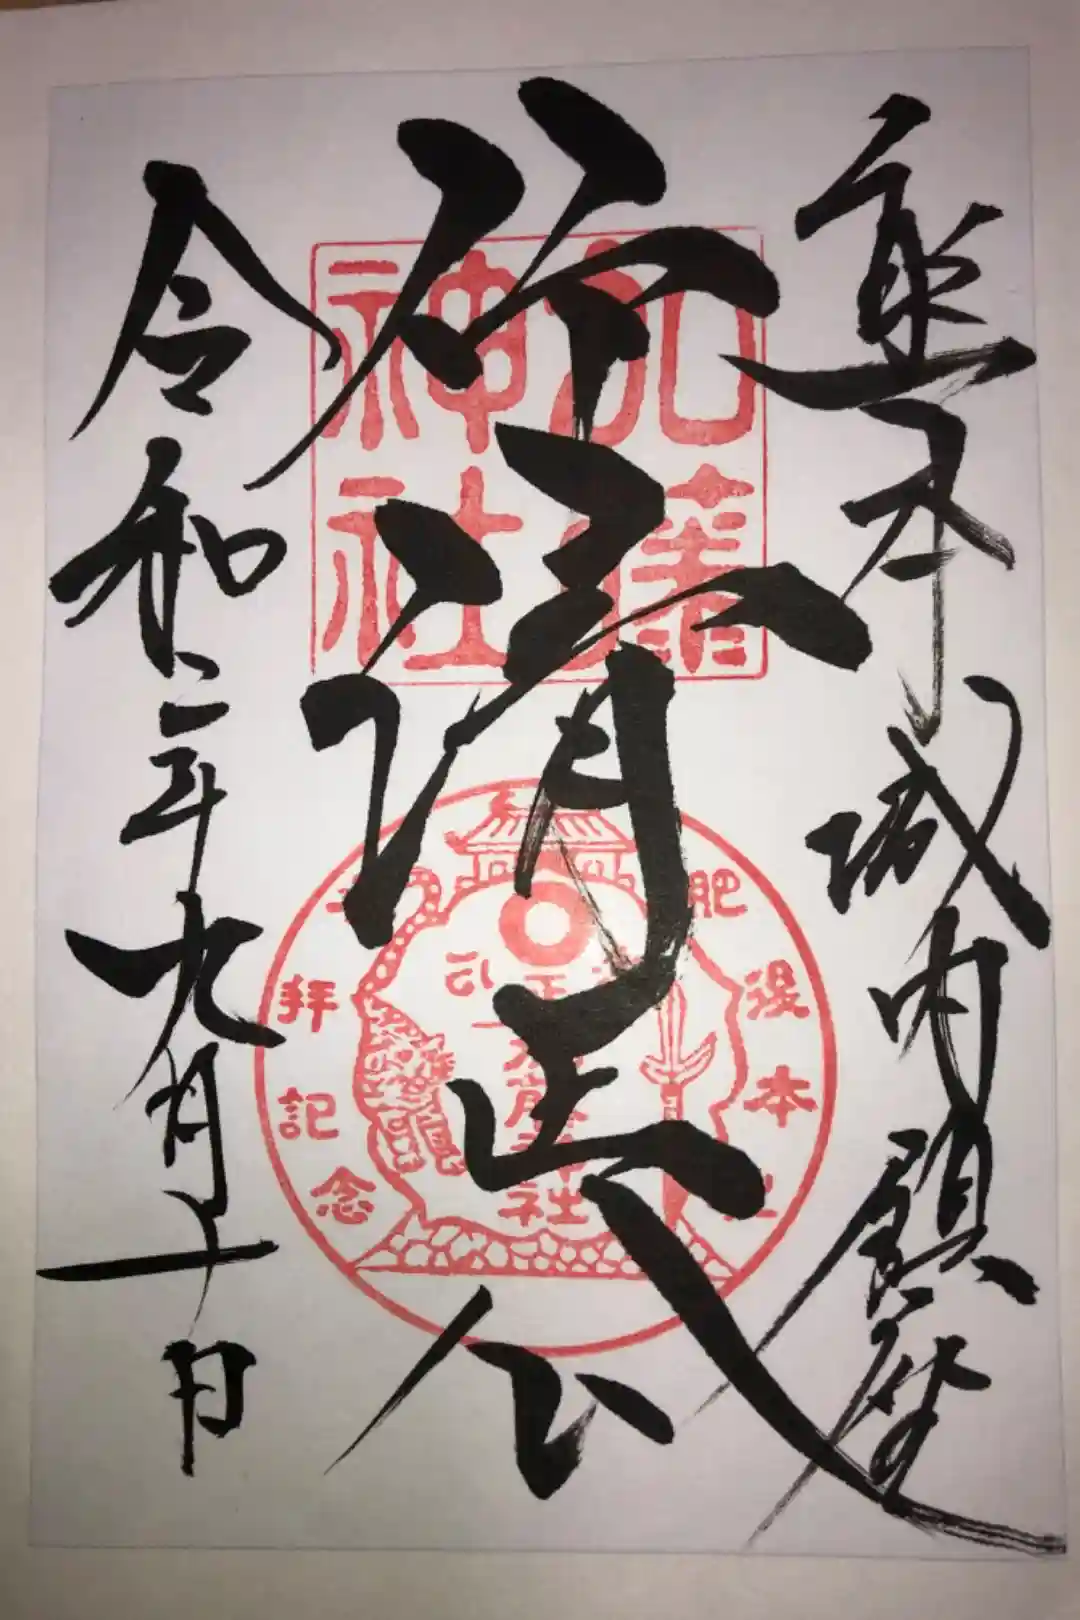 熊本城内鎮座
清正公
令和二年九月十日
加藤
神社
肥後本
拝
記
念